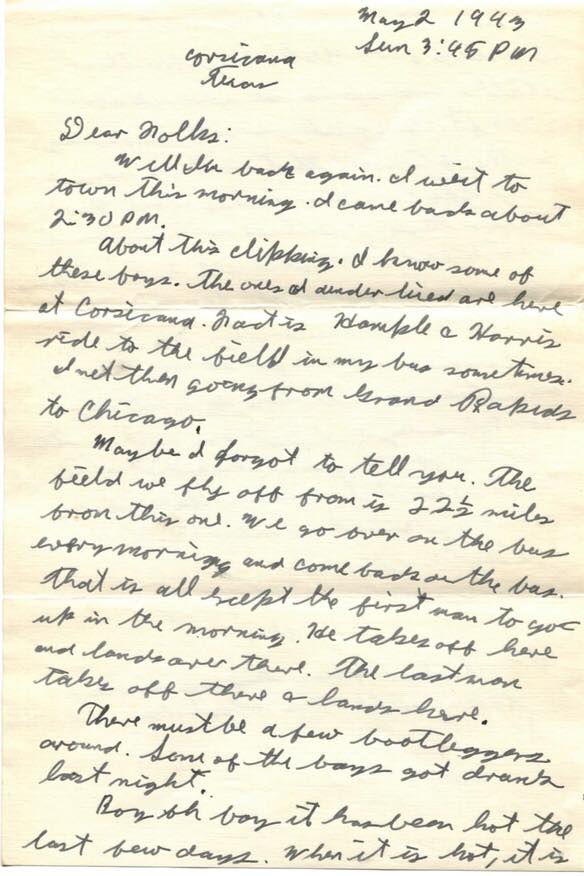 May 2 1943
Sun 3:45 PM
Corsicana
Texas
Dear Folks:
Well I'm back again. I went to
town this morning. I came back about
2:30 PM.
About this clipping. I know some of
these boys. The ones I underlined are here
at Corsicana. Fact is Hample & Harris
ride to the field in my bus sometimes.
I met them going from Grand Rapids
to Chicago.
Maybe I forgot to tell you. The
field we fly off from is 22½ miles
from this one. We go over on the bus
every morning and come back on the bus.
That is all except the first man to go
up in the morning. He takes off here
and lands over there. The last man
takes off there & lands here.
There must be a few bootleggers
around. Some of the boys got drunk
last night.
Boy oh boy it has been hot the
last few days. When it is hot, it is